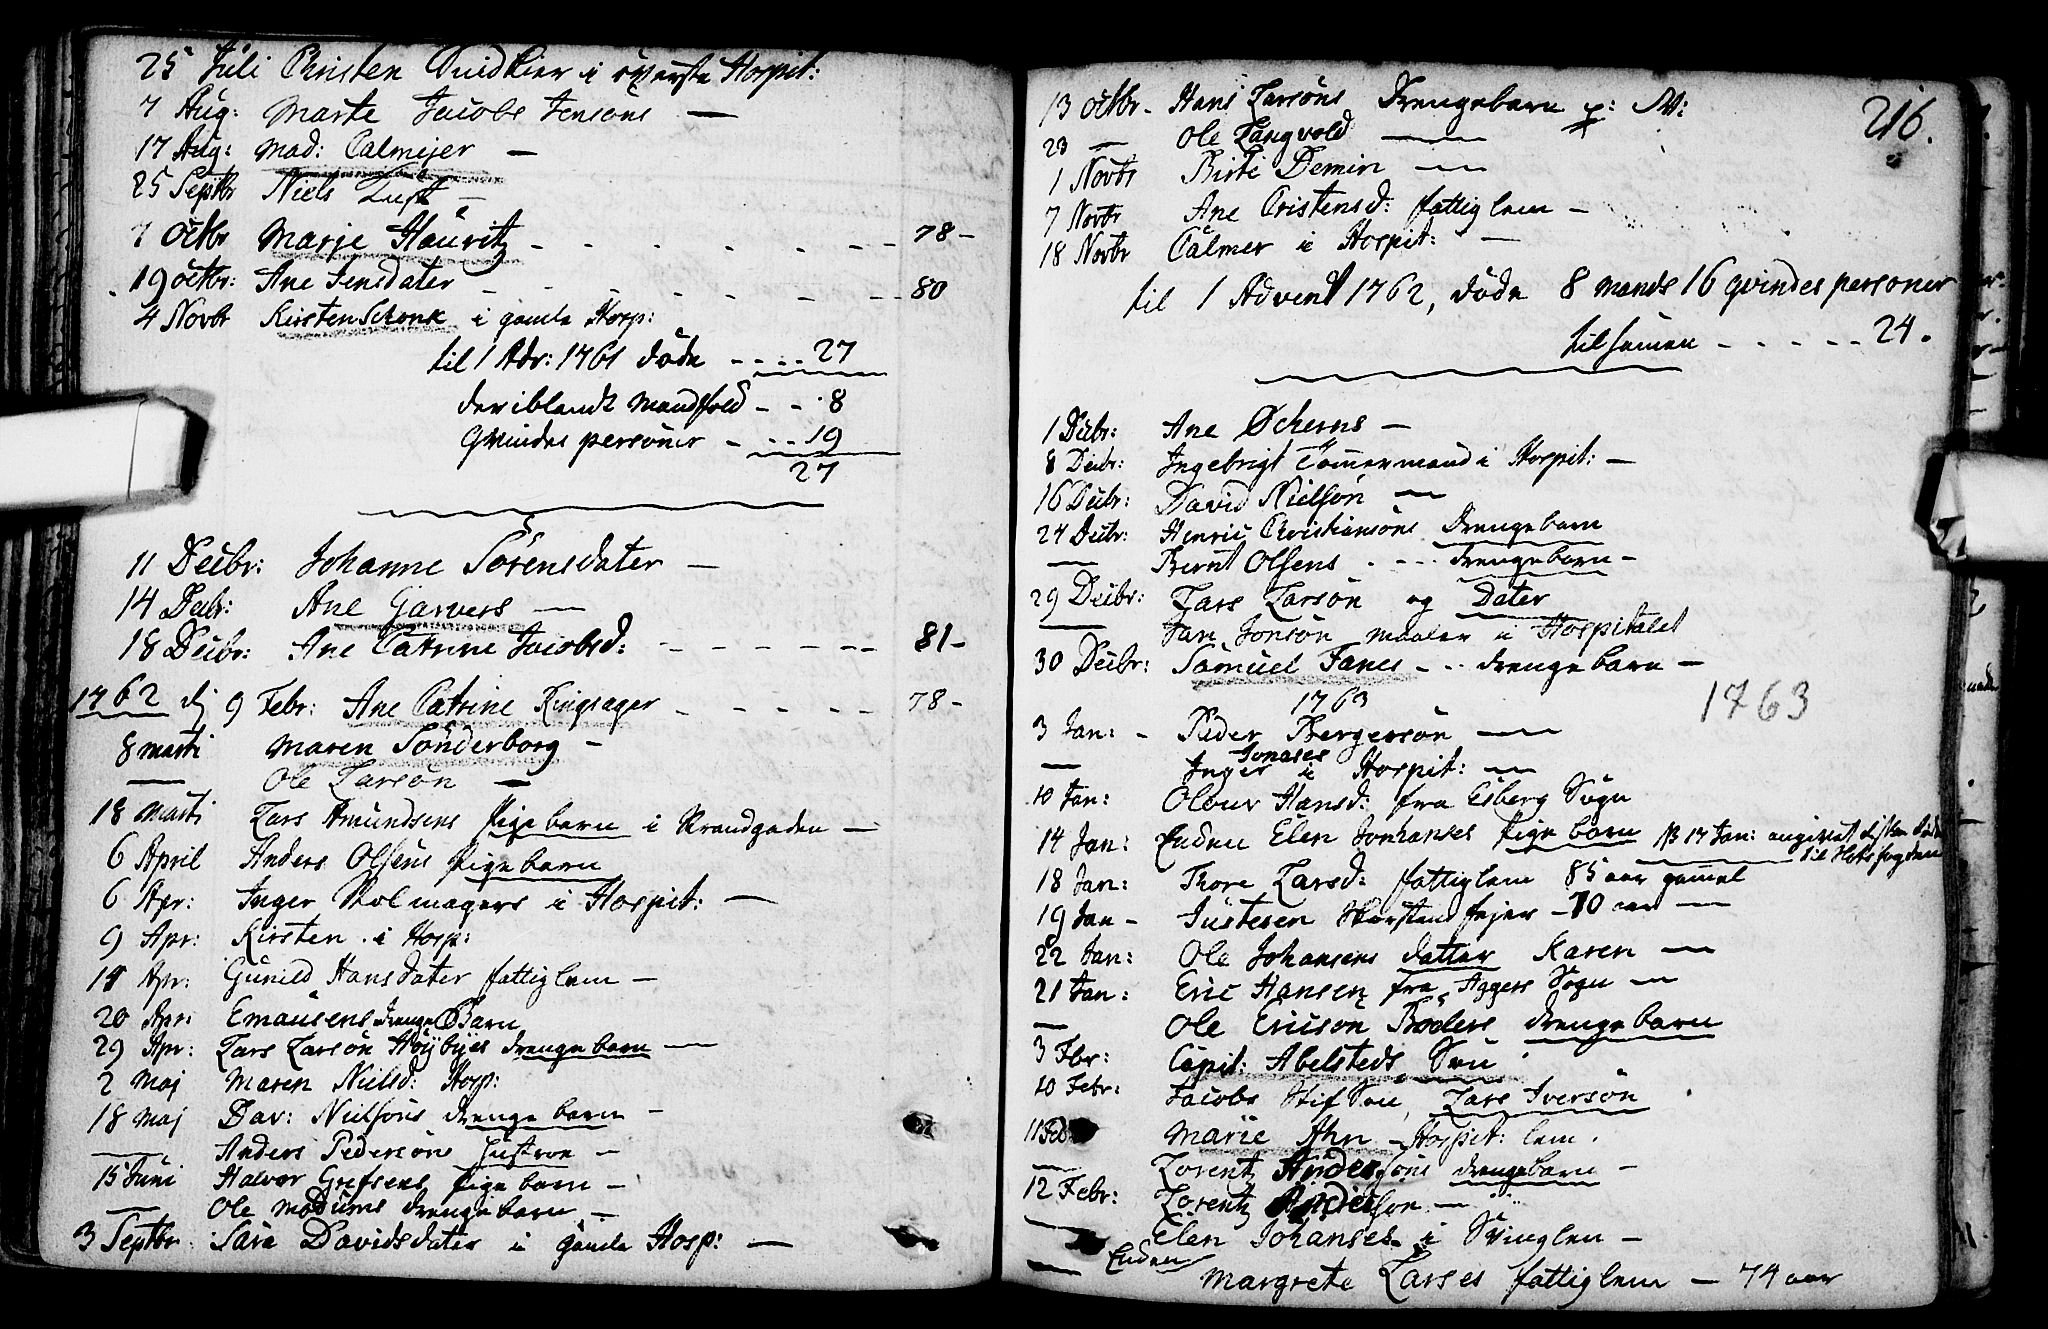 25 Juli Christen Qvidkier i øverste Hospit:
7 Aug: Marte Jacobs Jensøns —
17 Aug: Mad: Calmejer —
25 Septbr Niels Luft —
7 Octbr Marje Hauritz - - - - - - 78 -
19 octbr: Ane Jensdater - - - - - - 80
4 Novbr Kirsten Schonk i gamle Hosp:
til 1 Adv: 1761 døde - - - - 27
der iblandt Mandfold - - 8
Qvindes personer - - - 19
27
11 Decbr: Johanne Sørensdater —
14 Decbr: Ane Garvers —
18 Decbr: Ane Catrine Jacobsd: - - - - - - 81 -
1762 dj 9 Febr: Ane Catrine Ringsager - - - - - 78 -
8 marti Maren Sønderborg —
— Ole Larsøn —
18 Marti Lars Amundsens pige barn i Strandgaden —
6 April Anders Olsens pige barn
6 Apr: Inger Skolmagers i Hospit: —
9 Apr: Kirsten i Hosp:
14 Apr: Gunild Hansdater fattiglem —
20 Apr: Emausens drenge Barn
29 Apr: Lars Larsøn Høybyes drenge barn —
2 Maj Maren Nielsd: Hosp:
18 Maj Dav: Nielsøns drenge barn —
— Anders Pedersøns Hustroe —
15 Juni Halvor Grefsens pige barn —
— Ole Modums drenge barn —
3 Septbr Sara Davidsdater i gamle Hosp: —
216.
13 octbr - Hans Larsøns Drengebarn p: M:
23 — Ole Langvold —
1 Novbr Birte Demin —
7 Novbr Ane Cristensd: fattiglem —
18 Novbr Calmer i Hospit: —
til 1 Advent 1762, døde 8 mands 16 qvindes personer
tilsamen - - - - - 24.
1 Decbr: Ane Øcherns —
8 Decbr: Ingebrigt Tømermand i Hospit: —
16 Decbr: David Nielsøn —
24 Decbr: Henric Christiansøns drenge barn
— Bernt Olsens - - - drengebarn —
29 Decbr: Lars Larsøn og Dater
— Jan Jonsøn maaler i Hospitalet
30 Decbr: Samuel Fanes - - drenge barn —
1763
1763
3 Jan: - Peder Bergersøn —
— Inger Jonases i Hospit: —
10 Jan: Oliver Hansd: fra Esberg Sogn
14 Jan: Enden Elen Jonhanses pige barn NB 17 Jan: angivet
til Hofsfogden
18 Jan: Thore Larsd: fattiglem 85 aar gamel
19 Jan - Justesen Skorsteensfejer - 70 aar —
22 Jan: Ole Johansens datter Karen —
21 Jan: Eric Hansen fra Aggers Sogn —
— Ole Ericsøn Røders drenge barn
3 Fbr: Capit: Abelsteds Søn
10 Febr: Jacobs Stif Søn, Lars Iversøn
11 Feb Marie Ahn Hospit: lem.
— Lorentz Andersøns drengebarn —
12 Febr: Lorentz Andersøn —
— Elen Johanses i Svinglen —
— Enden Margrete Larses fattiglem — 74 aar